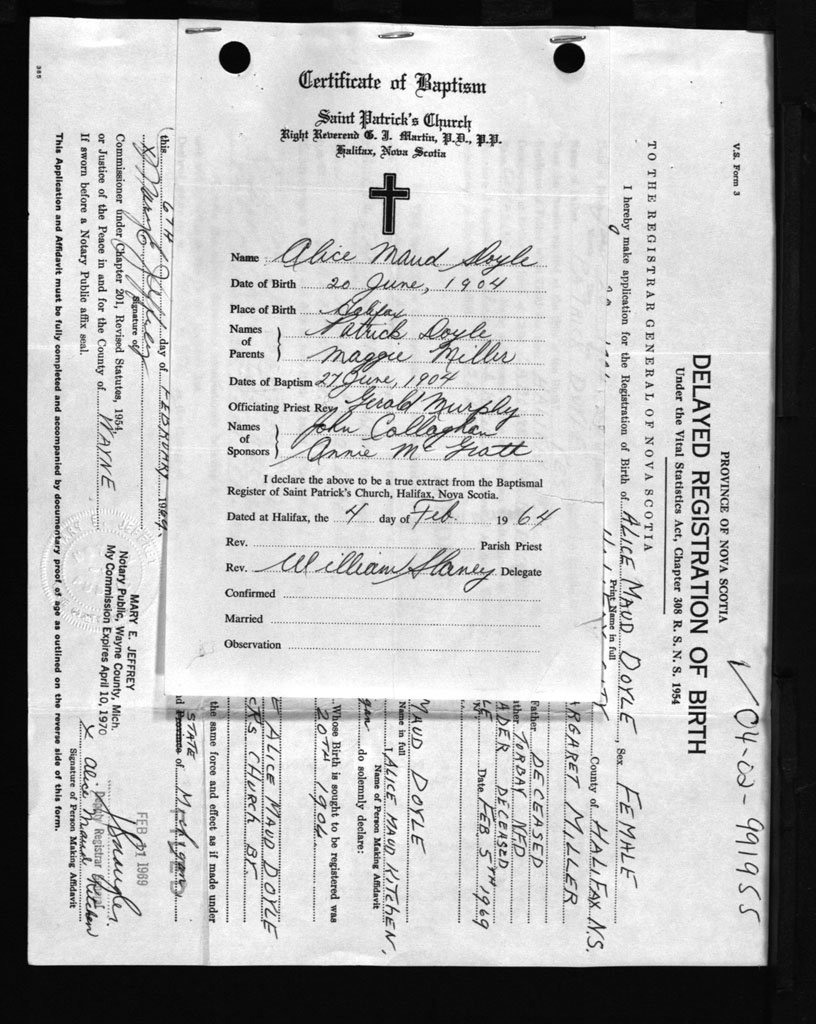 Certificate of Baptism
Saint Patrick's Church
Right Reverend G. J. Martin, P.D., P.P.
Halifax, Nova Scotia
Name Alice Maud Doyle
Date of Birth 20 June, 1904
Place of Birth Halifax
Names of Parents Patrick Doyle
Maggie Miller
Dates of Baptism 27 June, 1904
Officiating Priest Rev. Gerald Murphy
Names of Sponsors John Callaghan
Annie McGratt
I declare the above to be a true extract from the Baptismal
Register of Saint Patrick's Church, Halifax, Nova Scotia.
Dated at Halifax, the 4 day of Feb. 1964
Rev. Parish Priest
Rev. William Slaney Delegate
Confirmed
Married
Observation
V.S. Form 3
04-02-991955
PROVINCE OF NOVA SCOTIA
DELAYED REGISTRATION OF BIRTH
Under the Vital Statistics Act, Chapter 308 R. S. N. S. 1954
TO THE REGISTRAR GENERAL OF NOVA SCOTIA
I hereby make application for the Registration of Birth of ALICE MAUD DOYLE, Sex FEMALE
Print Name in full
County of HALIFAX N.S.
MARGARET MILLER
Father DECEASED
TORBAY NFD
DECEASED
Date FEB 5TH 1969
MAUD DOYLE
Name in full
I, ALICE MAUD KITCHEN,
Name of Person Making Affidavit
do solemnly declare:
Whose Birth is sought to be registered was
20TH 1904
ALICE MAUD DOYLE
CHURCH BY
the same force and effect as if made under
STATE
and Province of Michigan
this 6TH day of FEBRUARY 1969.
Mary E Jeffrey
Signature of
Commissioner under Chapter 201, Revised Statutes, 1954,
or Justice of the Peace in and for the County of WAYNE
If sworn before a Notary Public affix seal.
MARY E. JEFFREY
Notary Public, Wayne County, Mich.
My Commission Expires April 10, 1970
FEB 21 1969
Deputy Registrar General
x Alice Maud Kitchen
Signature of Person Making Affidavit
This Application and Affidavit must be fully completed and accompanied by documentary proof of age as outlined on the reverse side of this form.